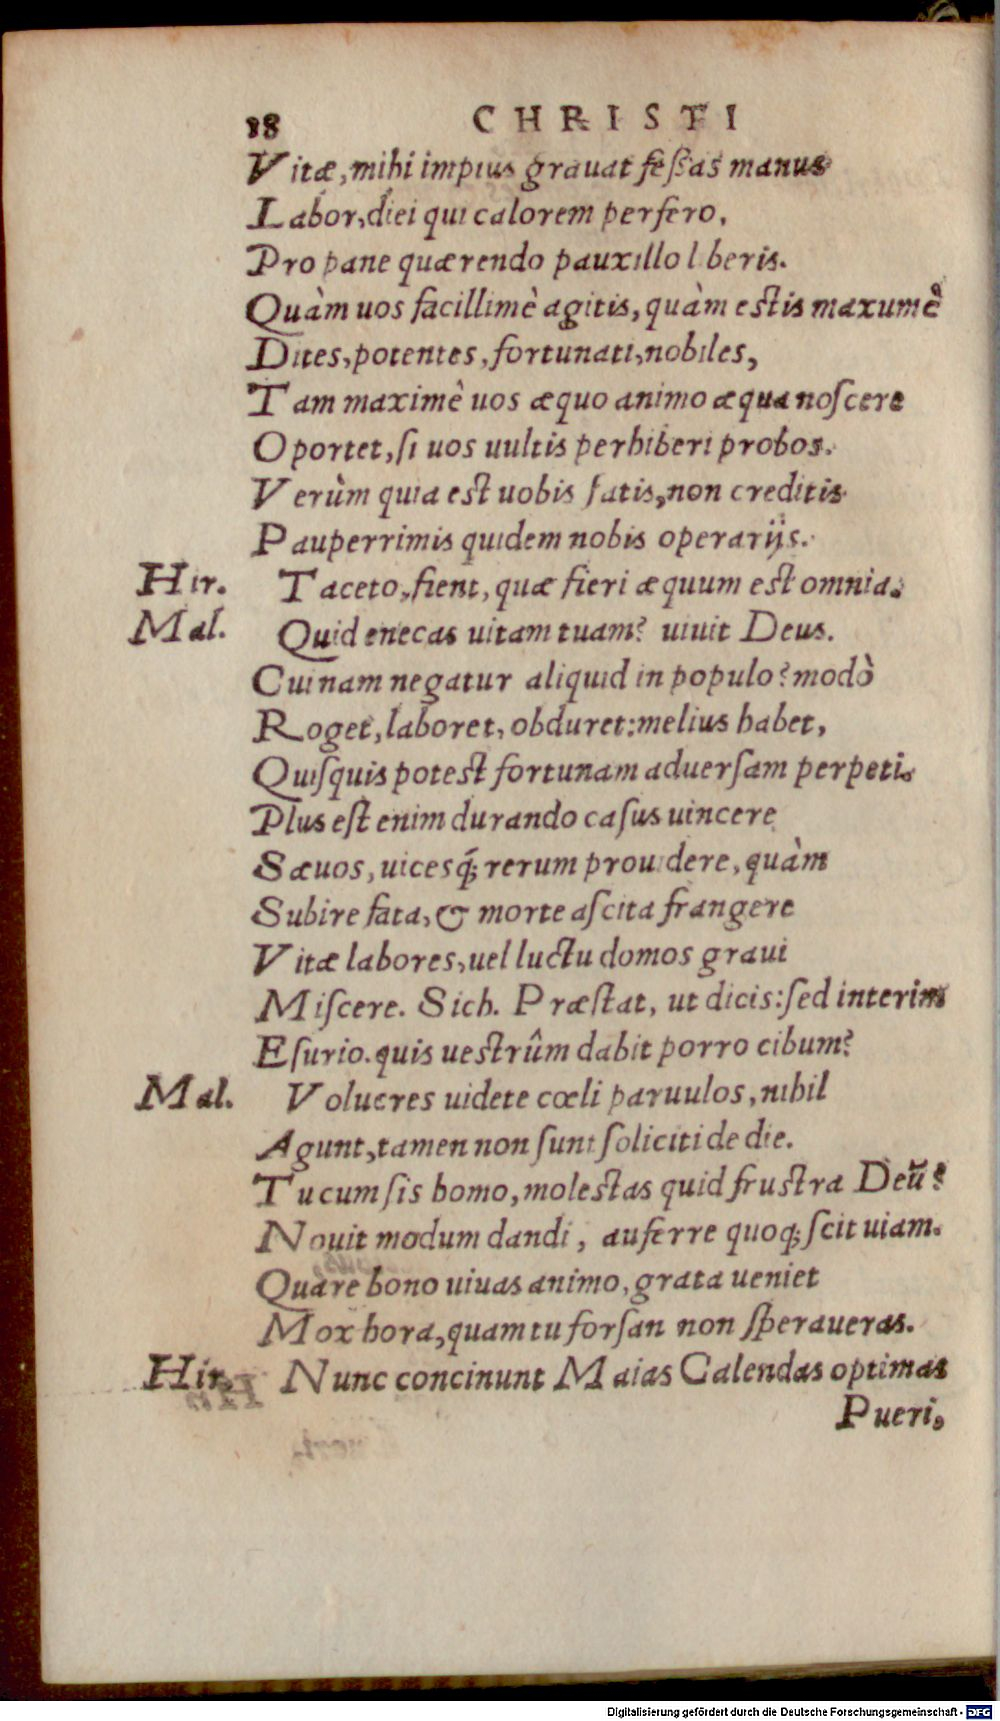 18 CHRISTI
Vitæ, mihi impius grauat feſſas manus
Labor, diei qui calorem perfero,
Pro pane quærendo pauxillo liberis.
Quàm uos facillimè agitis, quàm eſtis maxumè
Dites, potentes, fortunati, nobiles,
Tam maximè uos æquo animo æqua noſcere
Oportet, ſi uos uultis perhiberi probos.
Verùm quia eſt uobis ſatis, non creditis
Pauperrimis quidem nobis operarijs.
Hir. Taceto, fient, quæ fieri æquum eſt omnia.
Mal. Quid enecas uitam tuam? uiuit Deus.
Cuinam negatur aliquid in populo? modò
Roget, laboret, obduret: melius habet,
Quiſquis poteſt fortunam aduerſam perpeti.
Plus eſt enim durando caſus uincere
Sæuos, uicesq́; rerum prouidere, quàm
Subire fata, & morte aſcita frangere
Vitæ labores, uel luctu domos graui
Miſcere. Sich. Præſtat, ut dicis: ſed interim
Eſurio. quis ueſtrûm dabit porro cibum?
Mal. Volucres uidete cœli paruulos, nihil
Agunt, tamen non ſunt ſoliciti de die.
Tu cum ſis homo, moleſtas quid fruſtra Deū?
Nouit modum dandi, auferre quoq; ſcit uiam.
Quare bono uiuas animo, grata ueniet
Mox hora, quam tu forſan non ſperaueras.
Hir. Nunc concinunt Maias Calendas optimas
Pueri,
Digitalisierung gefördert durch die Deutsche Forschungsgemeinschaft - DFG